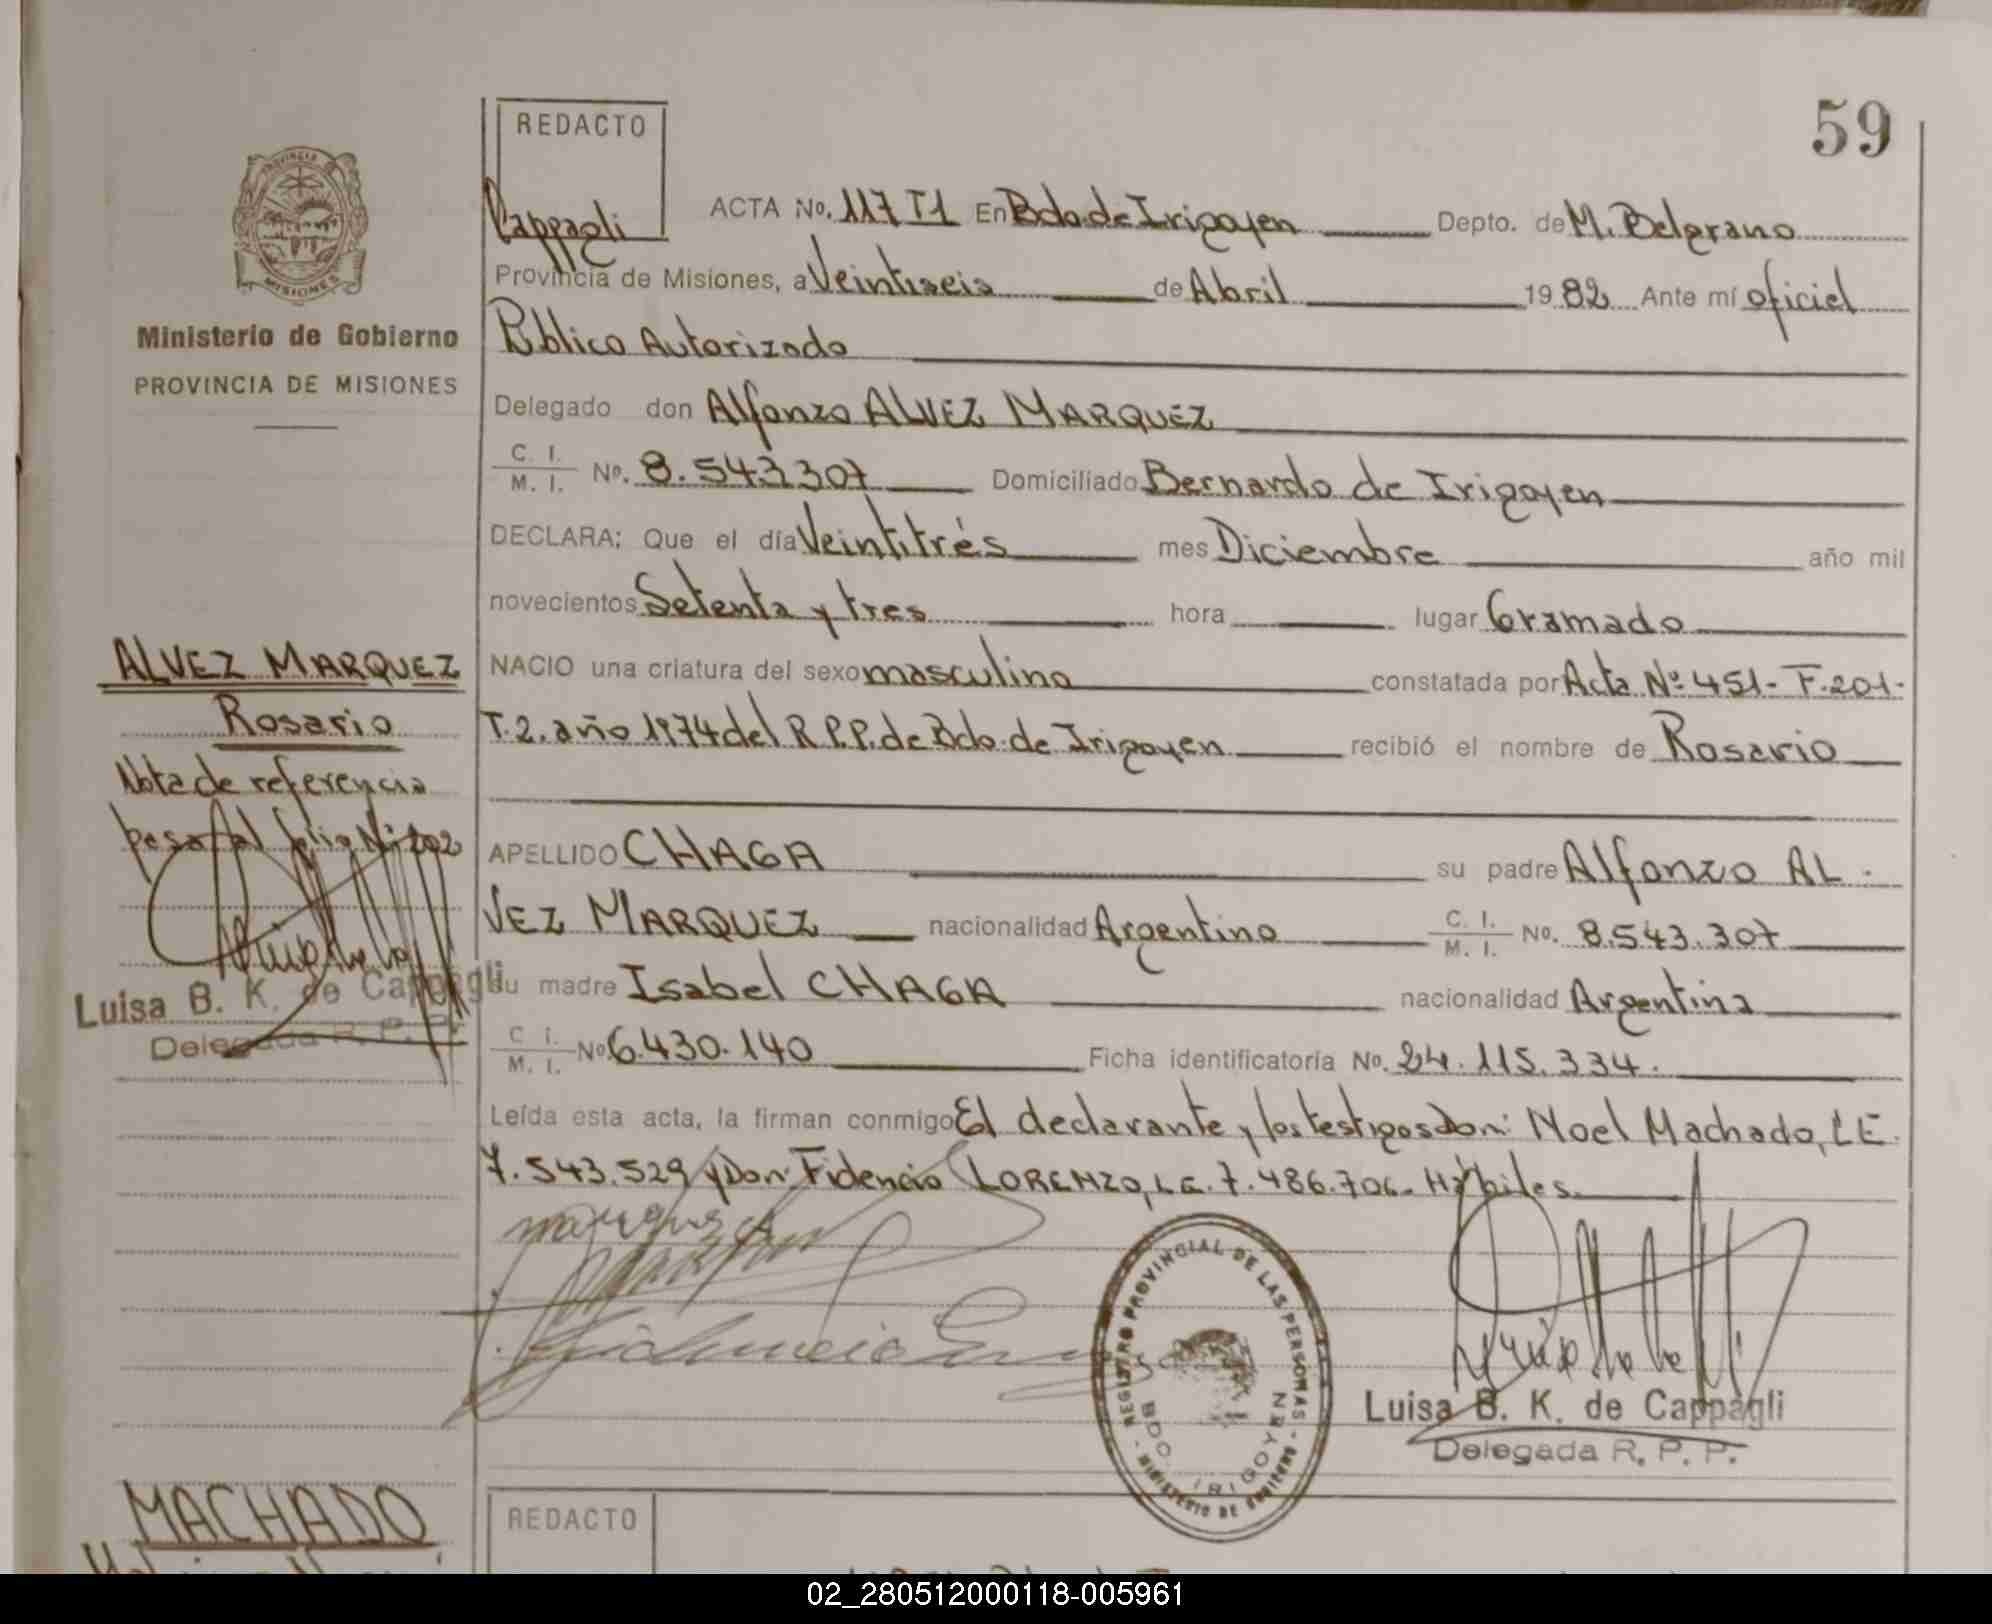 59
REDACTO
Cappagli
ACTA No. 117 T1 En Bdo de Irigoyen Depto. de M. Belgrano
Provincia de Misiones, a Veintiseis de Abril 1982 Ante mí oficial
Público Autorizado
Delegado don Alfonzo ALVEZ MARQUEZ
C. I.
M. I. No. 8.543307 Domiciliado Bernardo de Irigoyen
DECLARA: Que el día Veintitrés mes Diciembre año mil
novecientos Setenta y tres hora lugar Gramado
NACIO una criatura del sexo masculino constatada por Acta Nº 451- F.201-
T.2. año 1974 del R.P.P. de Bdo. de Irigoyen recibió el nombre de Rosario
APELLIDO CHAGA su padre Alfonzo AL-
VEZ MARQUEZ nacionalidad Argentino C. I. M. I. No. 8.543.307
su madre Isabel CHAGA nacionalidad Argentina
C. I.
M. I. No 6.430.140 Ficha identificatoria No. 24.115.334.
Leída esta acta, la firman conmigo El declarante y los testigos Don: Noel Machado, L.E.
7.543.529 y Don: Fidencio LORENZO, L.E. 7.486.706. Hábiles.
REGISTRO PROVINCIAL DE LAS PERSONAS - MINISTERIO DE GOBIERNO -
BDO. IRIGOYEN
Luisa B. K. de Cappagli
Delegada R. P. P.
PROVINCIA
MISIONES
Ministerio de Gobierno
PROVINCIA DE MISIONES
ALVEZ MARQUEZ
Rosario
Nota de referencia
pasa al folio Nº 202
Luisa B. K. de Cappagli
Delegada R. P. P.
MACHADO
REDACTO
02_280512000118-005961